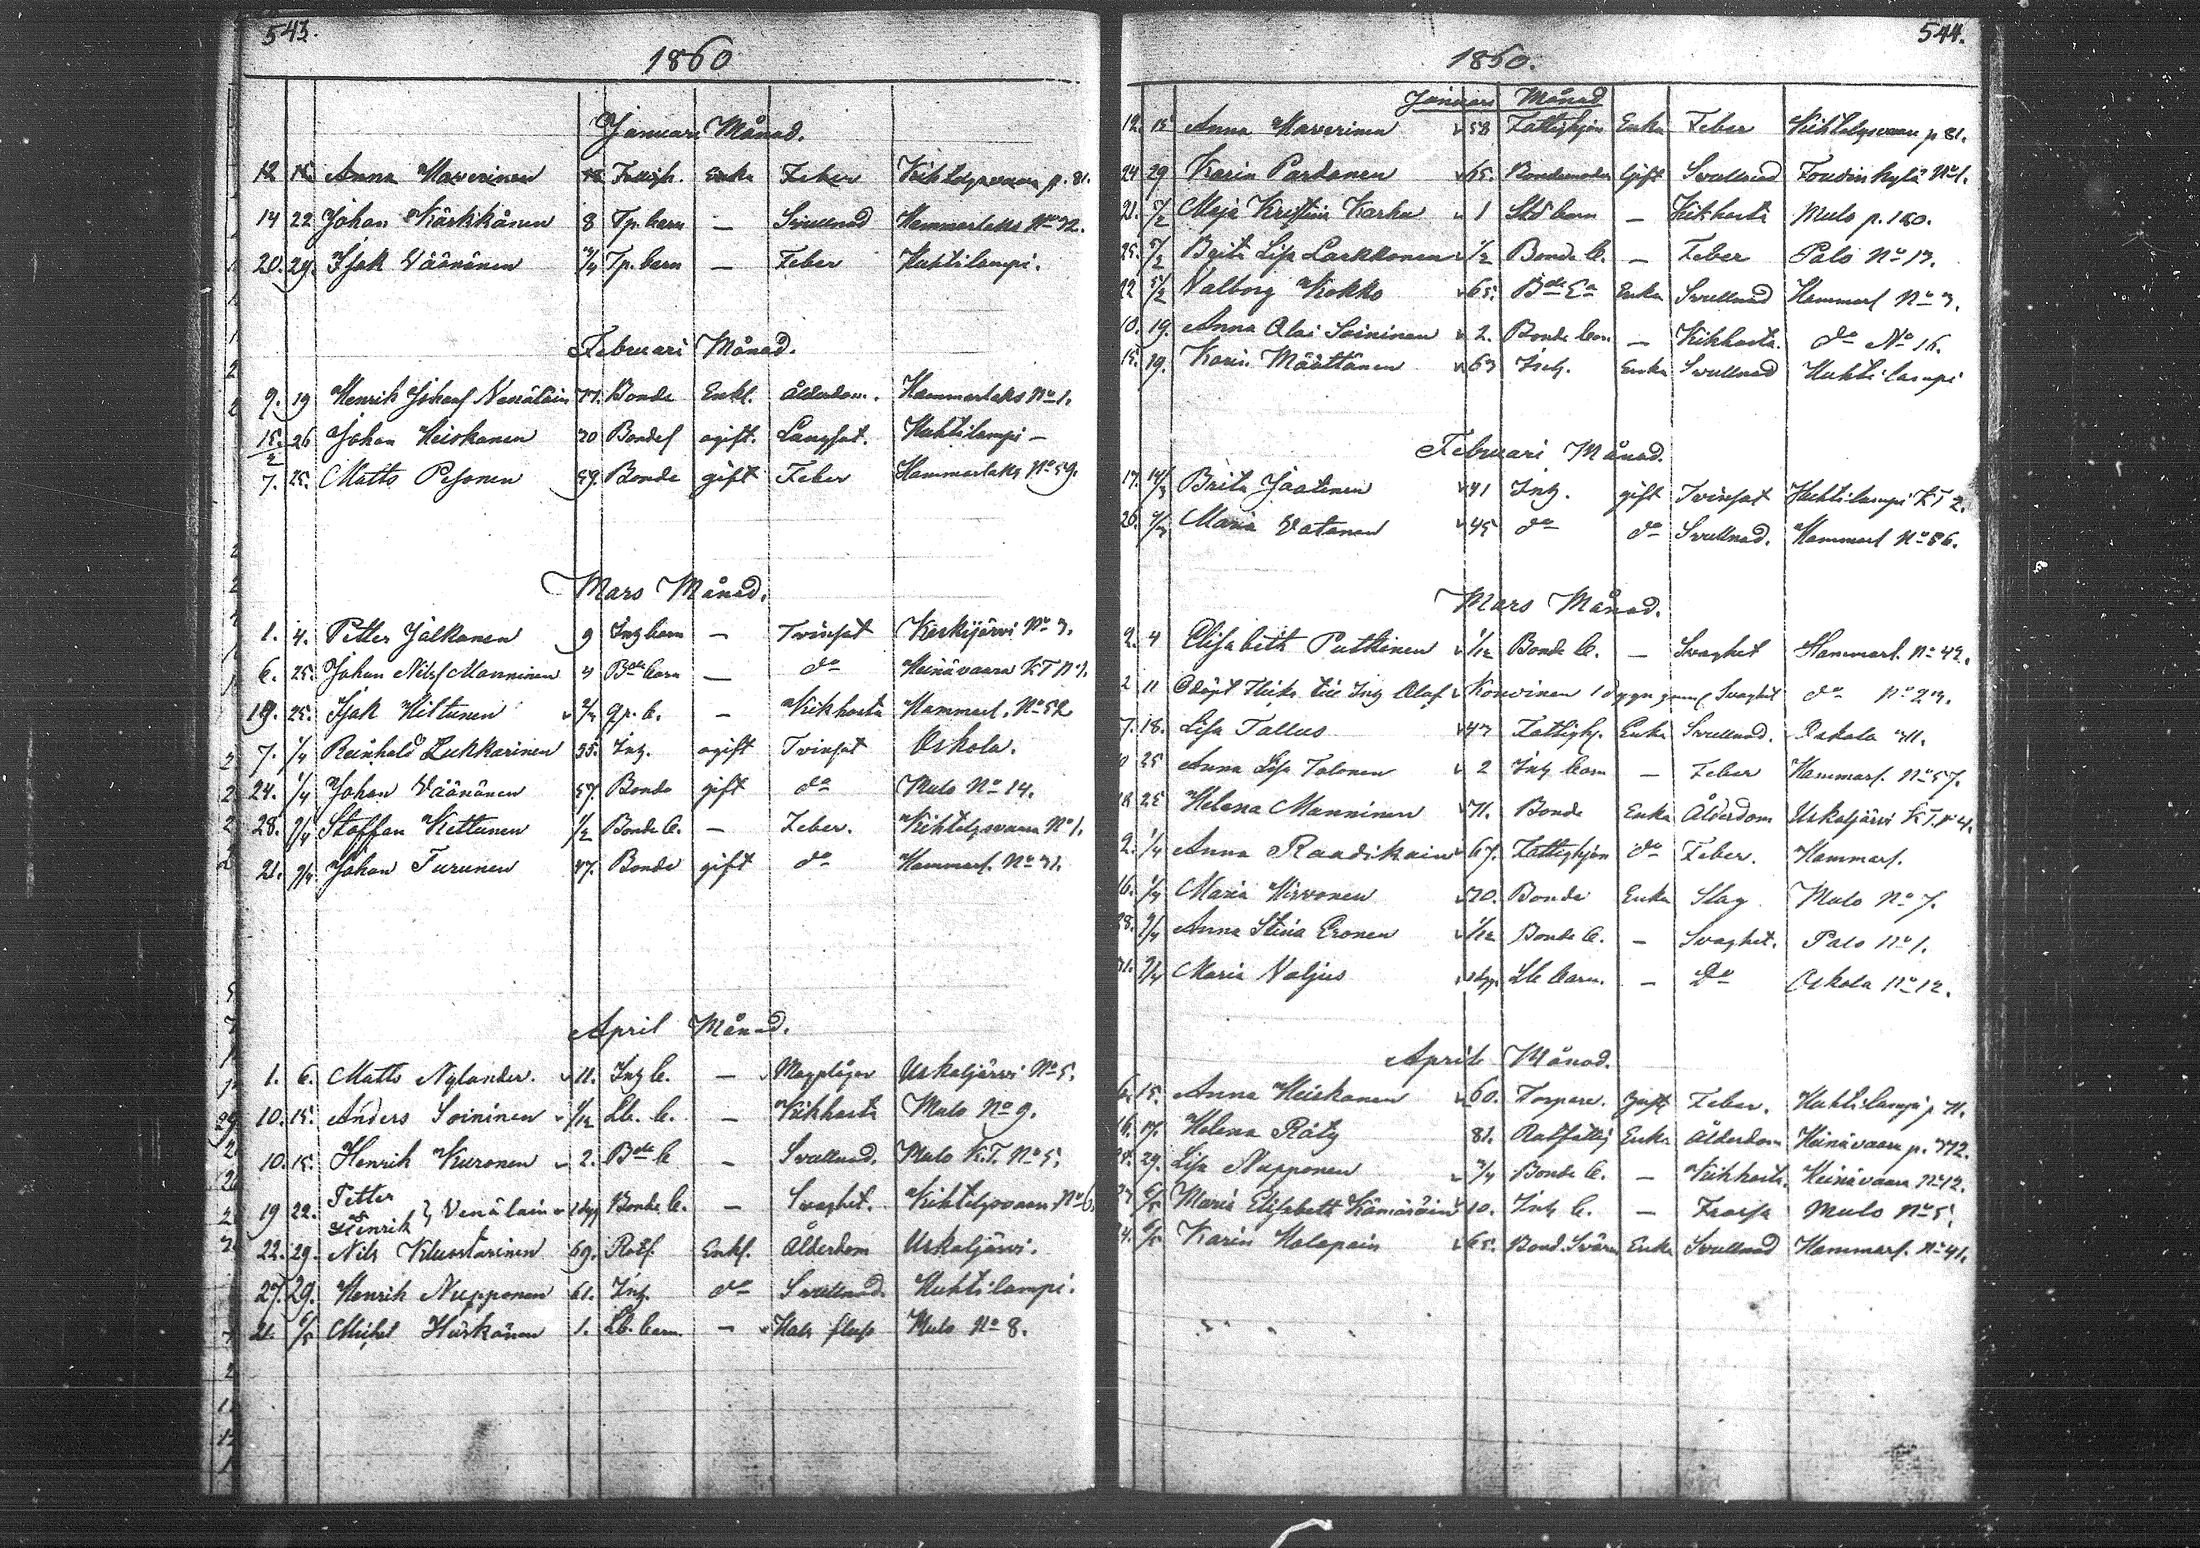 543.
1860
Januari Månad.
12. 15. Anna Haverinen Fattigh. Enka Feber Kihtelysvaara p. 81.
14 22 Johan Kärkkänen 8 Tp. barn — Svullnad Hammarlaks No 32.
20. 29. Isak Väänänen 3/4 Tp. barn — Feber Huhtilampi.
Februari Månad.
9. 19 Henrik Johans Venäläin 77. Bonde Enkl. Ålderdom. Hammarlaks No 1.
15/2 26 Johan Heiskanen 20 Bondes ogift. Lungsot. Huhtilampi —
7. 25. Matts Pesonen 59. Bonde gift Feber Hammarlaks No 59.
Mars Månad.
1. 4. Petter Jalkanen 9 Inh barn — Tvinsot Keskijärvi No 3.
6. 25. Johan Nils Manninen 4 Bde barn — do Heinävaara K T No 1.
19. 25. Isak Hiltunen 2/3 b. — Kikhosta Hammarl. No 52
7. 1/4 Reinhold Lukkarinen 35. Inh. ogift Tvinsot Oskola.
24. 1/4 Johan Väänänen 57. Bonde gift do Mulo No 14.
28. 9/4 Staffan Kettunen 1/2 Bonde b. — Feber. Kihtelysvaara No 1.
21. 9/4 Johan Turunen 47. Bonde gift do Hammarl. No 31.
April Månad.
1. 6. Matts Nylander. 11. Inh b. — Magplågor Uskaljärvi No 5.
10. 15. Anders Soininen 1/12 Lb. b. — Kikhosta Mulo No 9.
10. 15. Henrik Kuronen 2. Bde b — Svullnad. Mulo K.T. No 5.
19 22. Petter
Henrik } Venäläin 1 dyg Bonde b. — Svaghet. Kihtelysvaara No 6.
22. 29. Nils Klusstarinen 69. Rotf. Enkl. Ålderdom Uskaljärvi.
27. 29. Henrik Nupponen 61. Inh. do Svullnad. Huhtilampi.
21. 6/5 Michel Hirskänen 1. Lb. barn — Hals fluss Mulo No 8.
544.
1860.
Januari Månad
12. 15 Anna Haverinen 58 Fattighjon Enka Feber Kihtelysvaara p 81.
24 29 Karin Pardanen 65. Bondemoder Gift Svullnad Foudinkylä No 1.
21. 5/2 Maja Kristina Karhu 1 barn — Kikhosta Mulo p. 180.
25. 5/2 Brita Lisa Larkkonen 1/2 Bonde b. — Feber Palo No 13.
22 5/2 Valborg Kokko 65. Bde Ea Enka Svullnad Hammarl No 3.
10. 19. Anna Olai Soininen 2. Bonde barn — Kikhosta. do No 16.
15. 19. Karin Määttänen 63 Inh. Enka Svullnad Huhtilampi
Februari Månad.
17. 14/3 Brita Jaatinen 41 Inh. gift Tvinsot Huhtilampi K T 2.
26. 4/3 Maria Vatanen 45 do do Svullnad. Hammarl No 86.
Mars Månad.
2. 4 Elisabeth Puttinen 1/12 Bonde b. — Svaghet Hammarl. No 42.
2 11 Odöpt Flick. till Inh Olof Konvinen 1 dygn gam Svaghet do No 23.
7. 18. Lisa Tallus 43 Fattighj. Enka Svullnad. Rakola 311.
25 Anna Lisa Tolonen 2 Inh barn — Feber Hammarl. No 57.
18 25 Helena Manninen 71. Bonde Enka Ålderdom Uskaljärvi K T. No 4.
2. 1/4 Anna Raadikain 67. Fattighjon do Feber. Hammarl.
16. 1/4 Maria Hirvonen 70. Bonde Enka Slag Mulo No 7.
28. 9/4 Anna Stina Eronen 1/12 Bonde b. — Svaghet. Palo No 1.
31. 9/4 Maria Valjus dyg Lb barn. — Do Oskola No 12.
April Månad.
6. 15. Anna Heiskanen 60. Torpare. Gift Feber. Huhtilampi p 71.
16. 17. Helena Räty 81. Rotfattig Enka Ålderdom Heinävaara p. 372.
29. Lisa Nupponen 3/4 Bonde b. — Kikhosta. Heinävaara No 12.
6/5 Maria Elisabeth Kämäräin 10. Inh b. — Frossa Mulo No 5.
6/5 Karin Holopain 65. Bond. Svärm Enka Svullnad Hammarl. No 41.